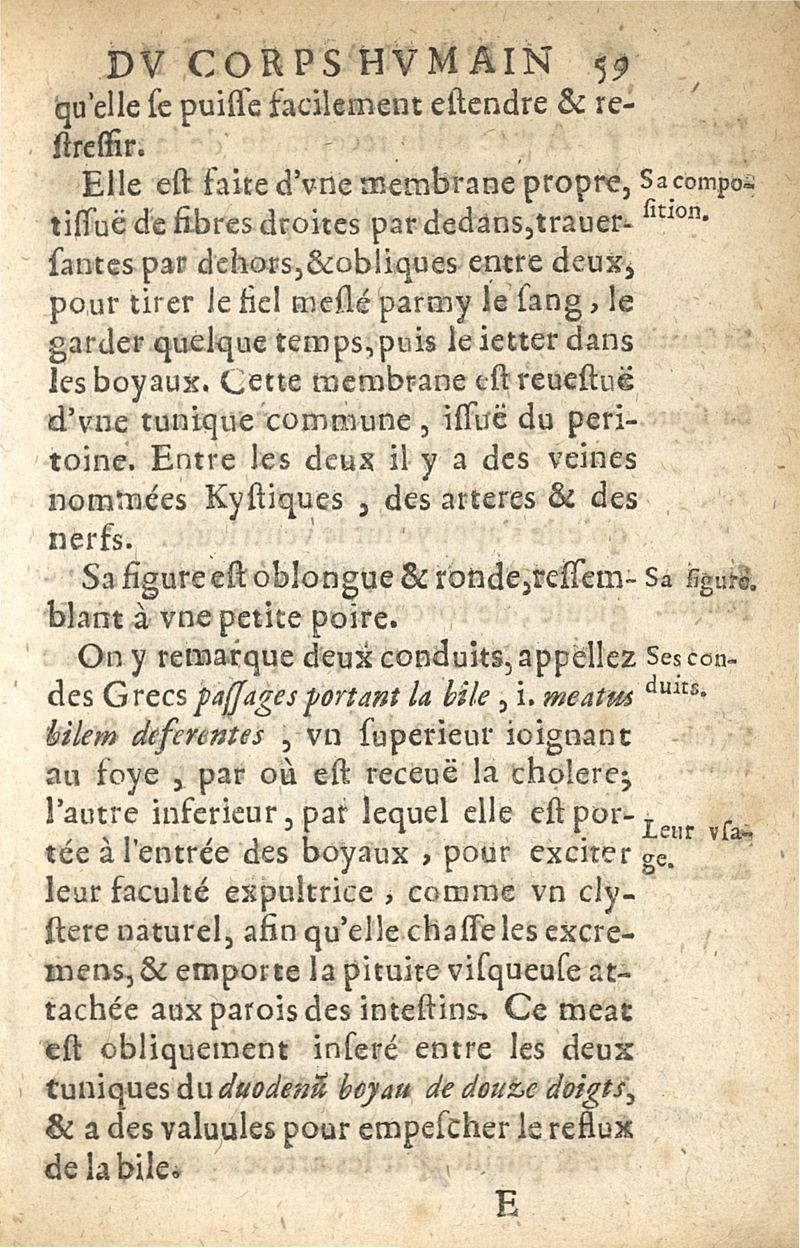 DV CORPS HVMAIN 59
qu'elle ſe puiſſe facilement eſtendre & re-
ſtreſſir.
Elle eſt faite d'vne membrane propre,
Sa compo-
ſition.
tiſſuë de fibres droites par dedans, trauer-
ſantes par dehors, & obliques entre deux,
pour tirer le fiel meſlé parmy le ſang, le
garder quelque temps, puis le ietter dans
les boyaux. Cette membrane eſt reueſtuë
d'vne tunique commune, iſſuë du peri-
toine. Entre les deux il y a des veines
nommées Kyſtiques, des arteres & des
nerfs.
Sa figure eſt oblongue & ronde, reſſem-
Sa figure.
blant à vne petite poire.
On y remarque deux conduits, appellez
Ses con-
duits.
des Grecs paſſages portant la bile, i. meatus
bilem deferentes, vn ſuperieur ioignant
au foye, par où eſt receuë la cholere;
l'autre inferieur, par lequel elle eſt por-
Leur vſa-
ge.
tée à l'entrée des boyaux, pour exciter
leur faculté expultrice, comme vn cly-
ſtere naturel, afin qu'elle chaſſe les excre-
mens, & emporte la pituite viſqueuſe at-
tachée aux parois des inteſtins. Ce meat
eſt obliquement inſeré entre les deux
tuniques du duodenũ boyau de douze doigts,
& a des valuules pour empeſcher le reflux
de la bile.
E